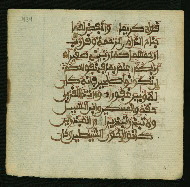 قولا كريما واخفض لهما
جناح الذل من الرحمة وقل رب
ارحمهما كما ربيني صغيرا
ربكم اعلم بما في نفوسكم
ان تكونوا صلحين فانه كان
للاوبين غفورا وءات ذا القربى
حقه والمسكين وابن السبيل
ولا تبذر تبذيرا ان المبذرين
كانوا اخون الشيطين وكان